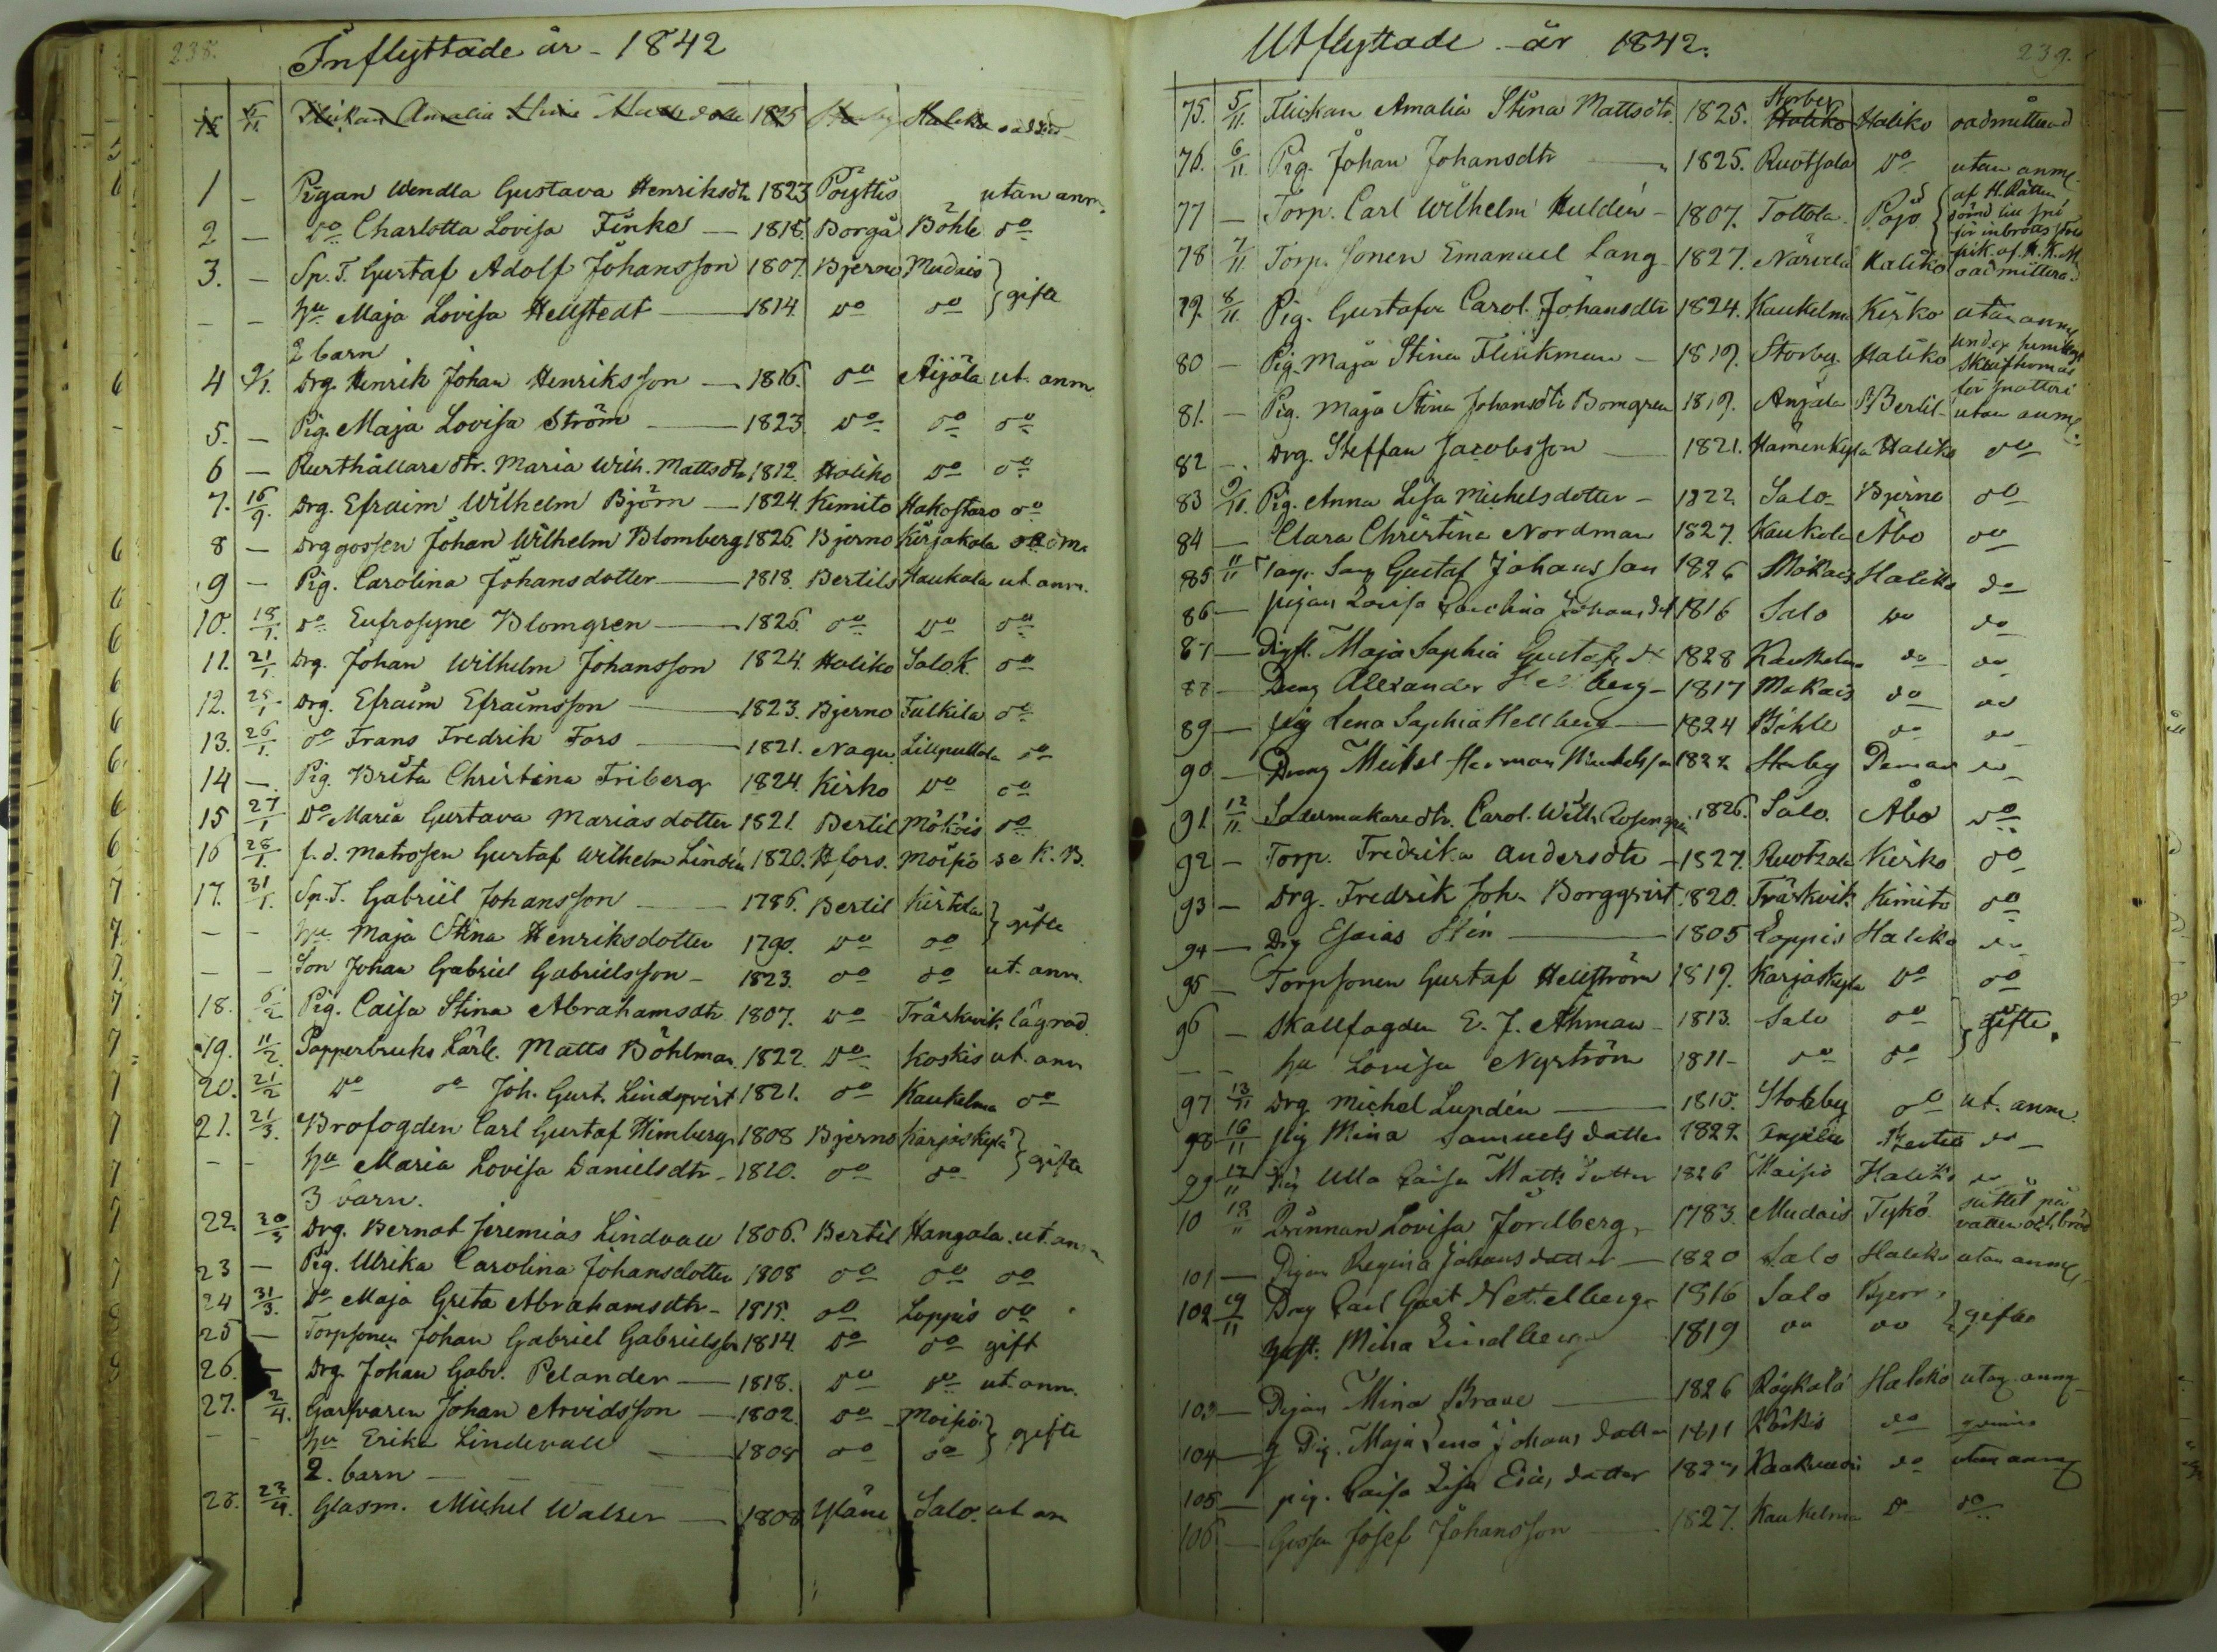 238.
Inflyttade år - 1842
75 5/11 Flickan Amalia Stina Mattsdotter 1825 Storby Haliko oadmit
1 - Pigan Wendla Gustava Henriksdtr 1823 Pöyttis utan anm.
2 - Do Charlotta Lovisa Finke - 1818. Borgå Böhle do
3. - Sp. T. Gustaf Adolf Johansson 1807. Bjerno Mudais } gifte
- - hu Maja Lovisa Hellstedt - 1814. do do
2 barn
4 9/1. Drg. Henrik Johan Henriksson - 1816. do Aijola ut. anm.
5. - Pig. Maja Lovisa Ström - 1823. do do do
6 - Rusthållare dtr. Maria Wilh. Mattsdtr 1812. Haliko do do
7. 16/9. Drg. Efraim Wilhelm Björn - 1824. Kimito Hakostaro do
8 - Drggossen Johan Wilhelm Blomberg 1826. Bjerno Kirjakala
9 - Pig. Carolina Johansdotter - 1818. Bertils Haukala ut. anm.
10. 18/1. do Eufrosyne Blomgren - 1826. do do do
11. 21/1. Drg. Johan Wilhelm Johansson 1824. Haliko Salo.K. do
12. 25/1 Drg. Efraim Efraimsson - 1823. Bjerno Fulkila do
13. 26/1. do Frans Fredrik Fors - 1821. Nagu. Lillpullola do
14 - Pig. Brita Christina Friberg 1824. Kirko do do
15 27/1 Do Maria Gustava Mariasdotter 1821. Bertil Mököis do
16 28/1. f.d. Matrosen Gustaf Wilhelm Lindén 1820. H.fors. Moisio se K.B.
17. 31/1. Sp. T. Gabriel Johansson - 1786. Bertil Kirtola } gifte
- - hu Maja Stina Henriksdotter 1790. do do
- - Son Johan Gabriel Gabrielsson - 1823. do do ut. anm.
18. 6/2 Pig. Caisa Stina Abrahamsdtr 1807. do Träskvik. lägrad.
19. 11/2. Papperbruks Karle. Matts Böhlman. 1822. do Koskis ut. anm
20. 21/2 do do Joh. Gust. Lindqvist 1821. do Kaukelma do
21. 21/3. Brofogden Carl Gustaf Himberg 1808 Bjerno Karjaskylä } gifte
- - hu Maria Lovisa Danielsdtr - 1810. do do
3 barn.
22. 30/3 Drg. Bernat Jeremias Lindvall 1806. Bertil Hangola. ut. anm
23 - Pig. Ulrika Carolina Johansdotter 1808 do do do
24 31/3. Do Maja Greta Abrahamsdtr - 1815. do Loppis do
25 - Torpsonen Johan Gabriel Gabrielsson 1814. do do gift
26. - Drg. Johan Gabr. Pelander - 1818. do do ut. anm.
27. 2/4. Garfvaren Johan Arvidsson - 1802. do Moisio } gifte
- - hu Erika Lindevall - 1809 do do
2. barn -
28. 23/4. Glasm. Michel Walser - 1808. Yläne Salo. ut. an
Utflyttade - år 1842.
239.
75. 5/11. Flickan Amalia Stina Mattsdtr. 1825. Storby Haliko Haliko oadmitterad
76. 6/11. Pig. Johan Johansdtr - 1825. Ruotsala do utan anm.
77 - Torp. Carl Wilhelm Huldén - 1807. Tottola. Pojo { af H. Rätten
78 7/11. Torp. Sonen Emanuel Lang - 1827. Närvelä Haliko oadmitterad.
79. 8/11. Pig. Gustafva Carol. Johansdtr 1824. Kaukelma Kirko utan anm.
80 - Pig. Maja Stina Flinkman - 1819. Storby. Haliko
81. - Pig. Maja Stina Johansdtr Bomgren 1819. Anjala St. Bertil - utan anm.
82 - Drg. Steffan Jacobsson - 1821. Hämenkylä Haliko do
83 9/10. Pig. Anna Lisa Michelsdotter - 1822. Salo - Bjerno do
84 - Clara Christina Nordman 1827. Kaukola Åbo do
85 11/11 Torp. Son Gustaf Johansson 1826 Mökais Haliko do
86 - pigan Lovisa Carolina Johansdot 1816 Salo do do
87 - Pigfl. Maja Sophia Gustafsd 1828 Kaukelma do do
88 - Dreng Alexander Hellberg - 1817 Mökais do do
89 - pig Lena Sophia Hellberg - 1824 Böhle do do
90 - Dreng Meikel Herman Mickelsson 1822 Storby Pemar do
91. 12/11. Sadermakare dtr. Carol. Wilh. Rosengrén. 1826. Salo. Åbo do
92 - Torp. Fredrika Andersdtr - 1827. Ruotsala Kirko do
93 - Drg. Fredrik Joh. Borgqvist. 1820. Träskvik. Kimito do
94 - Drg Esaias Stén - 1805 Loppis Haliko do
95 - Torpsonen Gustaf Hellström 1819. Karjaskylä do do
96 - Skallfogden E. J. Åhman - 1813. Salo do } gifte.
- - hu Lovisa Nyström 1811 - do do
97 13/11 Drg Michel Lundén - 1815. Storby do ut. anm.
98 16/11 pig Mina Samuelsdotter 1822. Anjala Bertil do
99 17/11 Pig Ulla Caisa Matts dotter 1826 Moisio Haliko do
10 18/11 Qvinnan Lovisa Fordberg - 1783. Mudais Tykö suttit på vatten och bröd
101 - Pigan Regina Johansdotter - 1820 Salo Haliko utan anm.
102 19/11 Dreg Carl Gust Nettelberg - 1816 Salo Bjern. } gifta
gift. Mina Lindberg 1819 do do
103 - Pigan Mina Brave - 1826 Röykälä Haliko utan anm
104 - Pig. Maja Lena Johans dotter 1811 Kärkis do
105 - pig. Caisa Lisa Eias dotter do utan anm
106 - Gossen Josef Johansson - 1827. Kaukelma do do